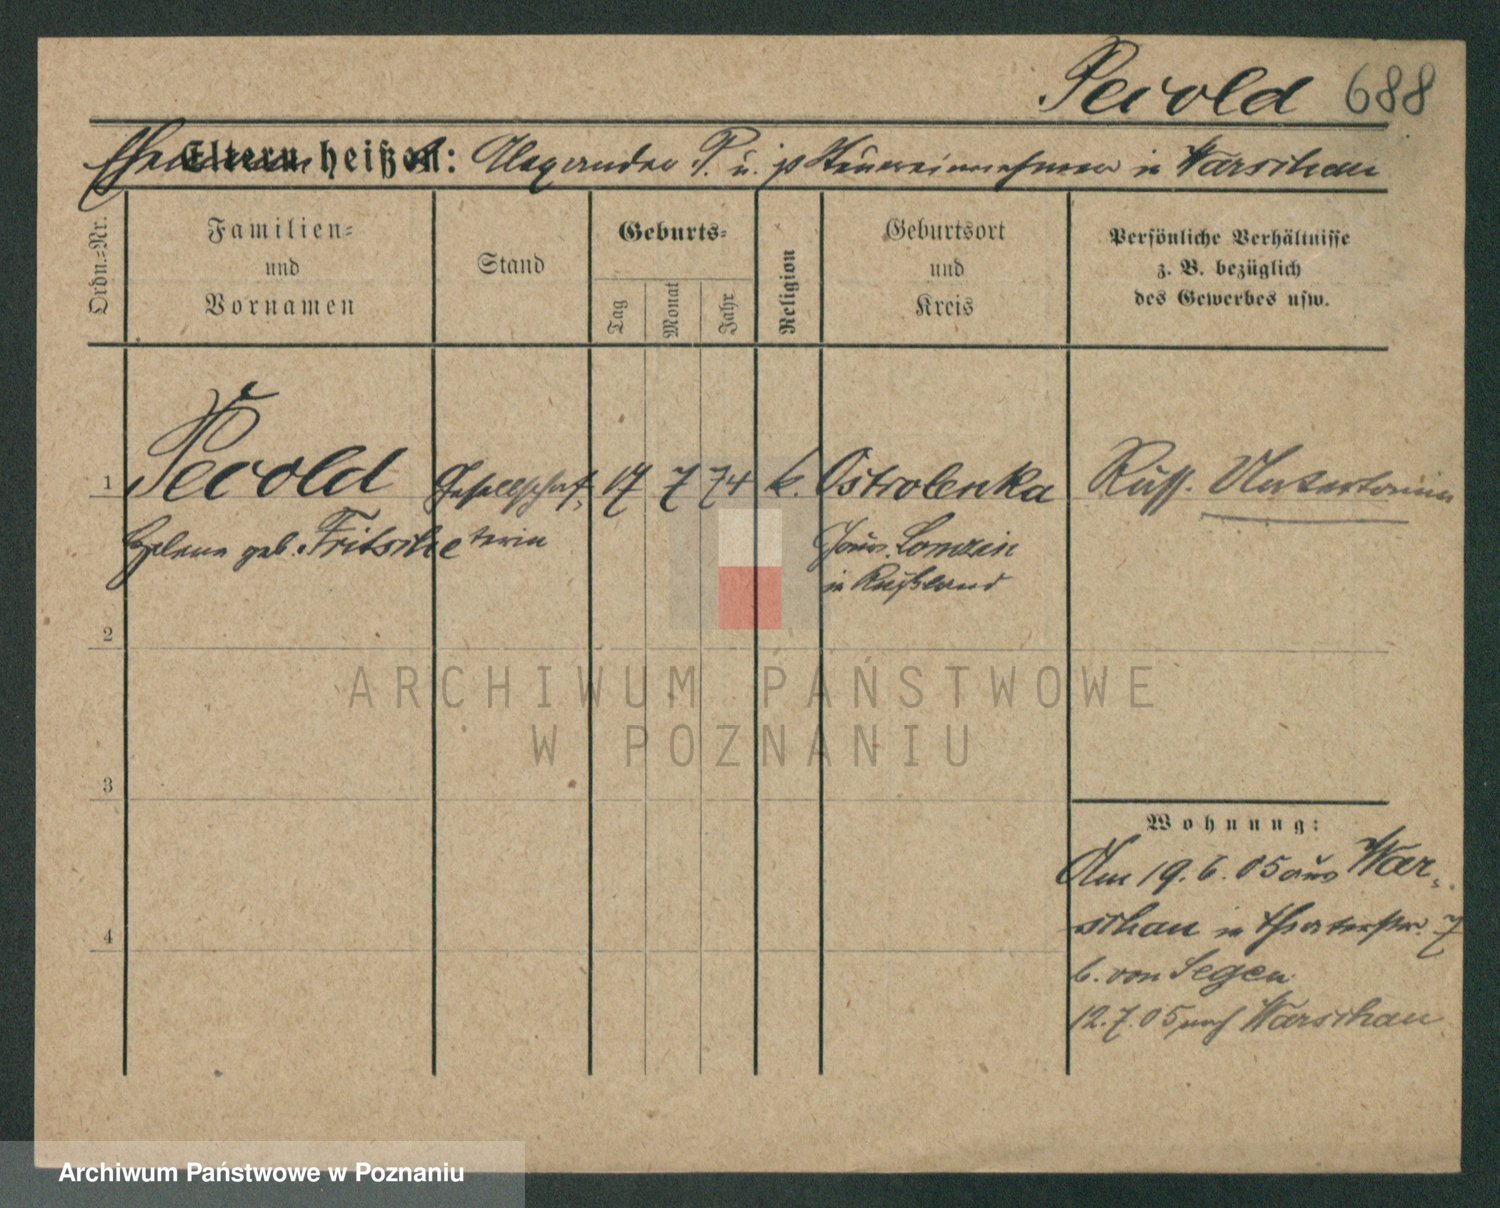 Pecold 688
Ehemann heißt: Alexander P. u. ist Steuereinnehmer in Warschau
Ordn.-Nr.
Familien-
und
Vornamen
Stand
Geburts-
Tag
Monat
Jahr
Religion
Geburtsort
und
Kreis
Persönliche Verhältnisse
z. B. bezüglich
des Gewerbes usw.
1 Pecold Gesellschaf- 17 7 74 k. Ostrolenka Russ. Untertanin
Helene geb. Fritsche terin Gouv.
in Rußland
2
ARCHIWUM PAŃSTWOWE
W POZNANIU
3
Wohnung:
Am 19. 6. 05 aus War-
schau in Theaterstr. 7
4
b. von Segen
12. 7. 05 nach Warschau
Archiwum Państwowe w Poznaniu